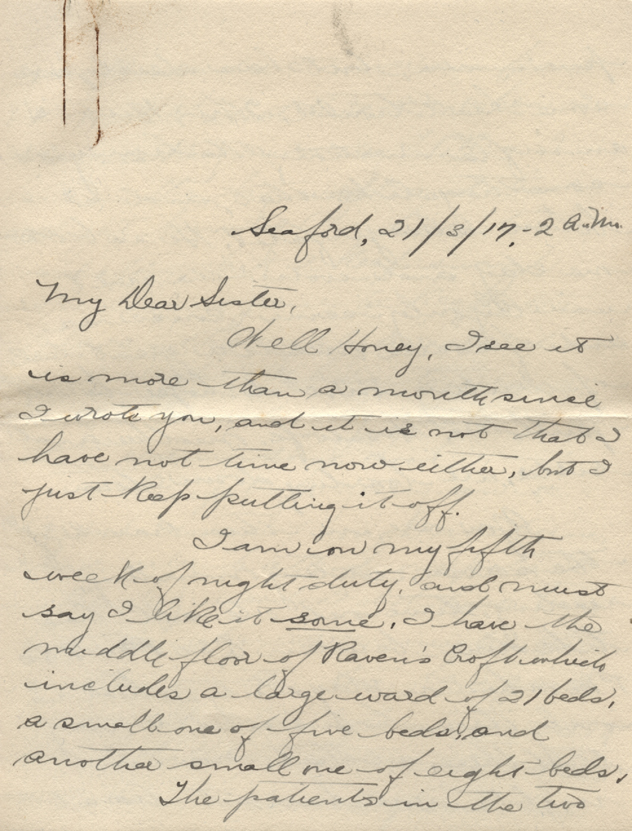 Seaford, 21/3/17, - 2 a.m.
My Dear Sister,
Well Honey, I see it
is more than a month since
I wrote you, and it is not that I
have not time now either, but I
just keep putting it off.
I am on my fifth
week of night duty, and must
say I like it some. I have the
middle floor of Raven's Croft which
includes a large ward of 21 beds,
a small one of five beds, and
another small one of eight beds.
The patients in the two